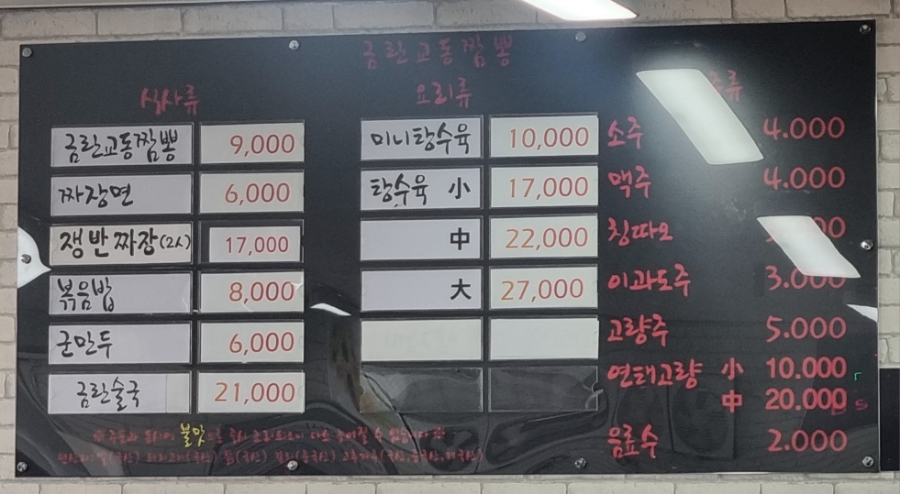 금란교동짬뽕
식사류
금란교동짬뽕 9,000
짜장면 6,000
쟁반짜장(2人) 17,000
볶음밥 8,000
군만두 6,000
금란술국 21,000
요리류
미니탕수육 10,000
탕수육 小 17,000
中 22,000
大 27,000
류
소주 4.000
맥주 4.000
칭따오
이과도주 3.000
고량주 5.000
연태고량 小 10.000
中 20.000
음료수 2.000
※ 주문과 동시에 불맛